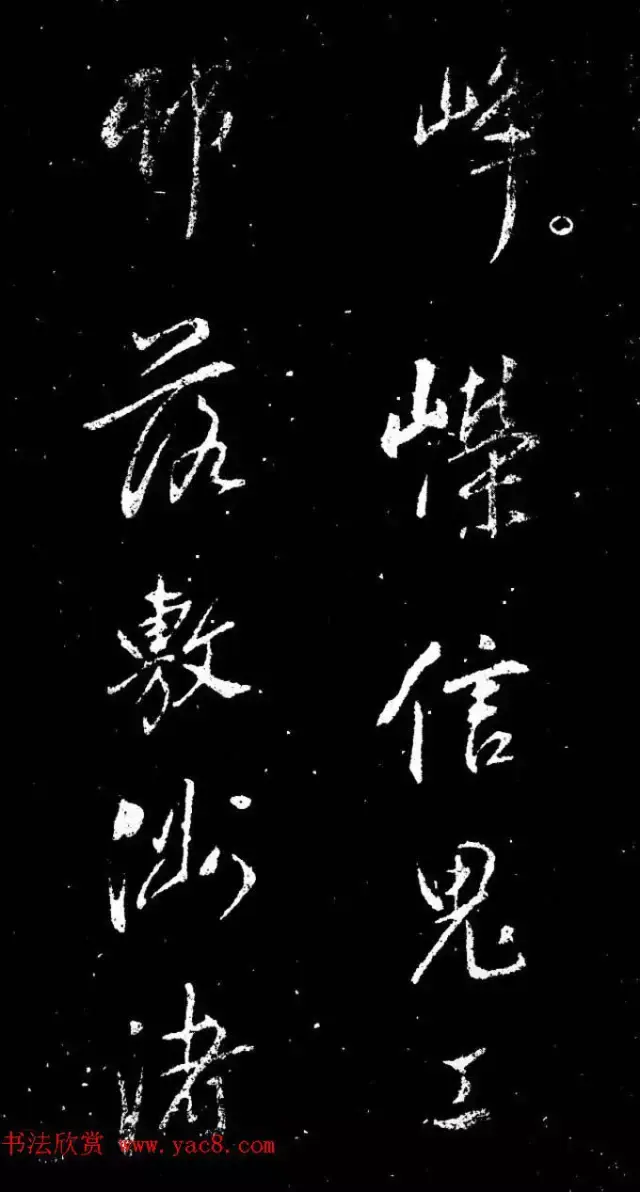 峰。嵘信鬼工
邨落敷洲渚
书法欣赏 www.yac8.com